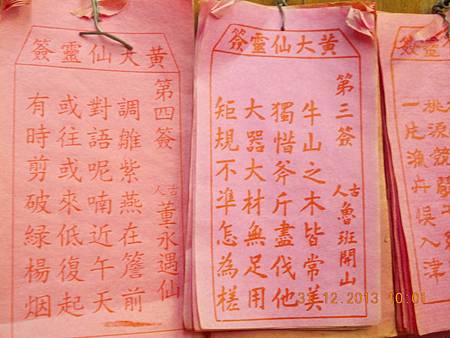 靈簽
黃大仙靈簽
第三簽
古人 魯班開山
牛山之木皆常美
獨惜斧斤盡伐他
大器大材無足用
矩規不準怎為槎
黃大仙靈簽
第四簽
古人 董永遇仙
調雛紫燕在簷前
對語呢喃近午天
或往或來低復起
有時剪破綠楊烟
12.2013 10:01